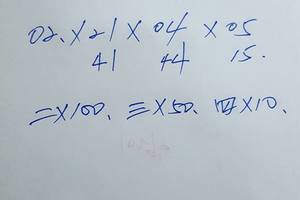 02.×21×04×05
41 44 15.
二×100、三×50、四×10、